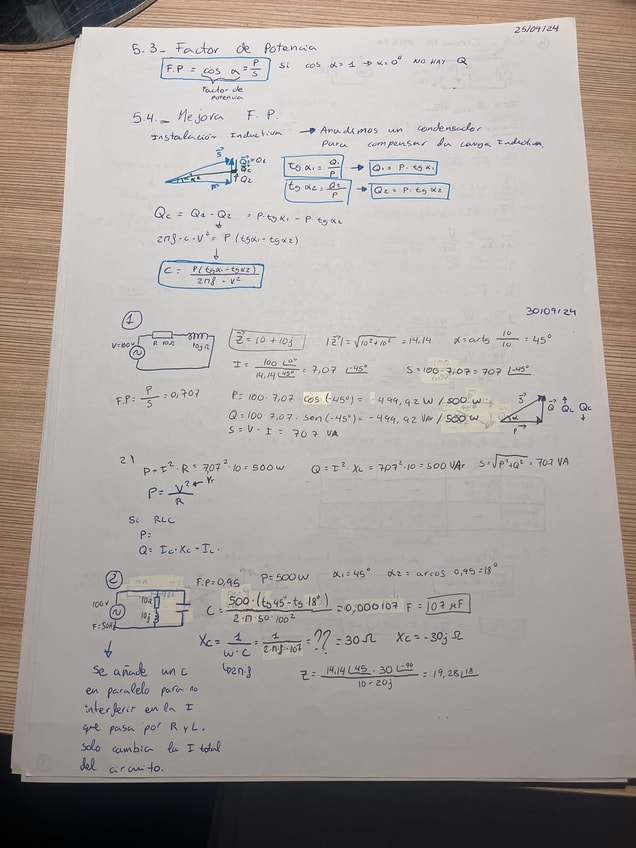 25/09/24
5.3_ Factor de Potencia
F.P = cos α = P/S Si cos α = 1 → α = 0° NO HAY Q
Factor de
potencia
5.4._ Mejora F.P.
Instalación Inductiva → Anadimos un condensador
para compensar la carga Inductiva.
tg α1 = Q1/P → Q1 = P · tg α1
tg α2 = Q2/P → Q2 = P · tg α2
Qc = Q1 - Q2 = P · tg α1 - P · tg α2
2πf · c · V² = P (tg α1 - tg α2)
C = P(tg α1 - tg α2) / 2πf · V²
30/09/24
1
V=100V R 10Ω 10jΩ
Z = 10 + 10j |Z| = √10²+10² = 14,14 α = arctg 10/10 = 45°
I = 100∠0° / 14,14∠45° = 7,07 ∠-45° S = 100 · 7,07 = 707 ∠-45°
F.P = P/S = 0,707
P = 100 · 7,07 cos (-45°) = 499,92 W / 500 W
Q = 100 · 7,07 · sen (-45°) = -499,92 VAr / 500 W
S = V · I = 707 VA
S Q QL Qc
α P
2) P = I² · R = 7,07² · 10 = 500 W Q = I² · XL = 7,07² · 10 = 500 VAr S = √P²+Q² = 707 VA
P = V²/R ← Vr
Si RLC
P =
Q = Ic · Xc - IL .
2
F.P = 0,95 P = 500 W α1 = 45° α2 = arcos 0,95 = 18°
100V 10Ω 10j
F = 50Hz
C = 500 · (tg 45° - tg 18°) / 2 · π · 50 · 100² = 0,000107 F = 107 μF
Xc = 1 / w · C = 1 / 2·π·f·107 = ?? = 30 Ω Xc = -30j Ω
↳ 2π·f
Z = 14,14∠45 · 30∠-90 / 10-20j = 19,28∠18
Se añade un C
en paralelo para no
interferir en la I
que pasa por R y L.
solo cambia la I total
del circuito.